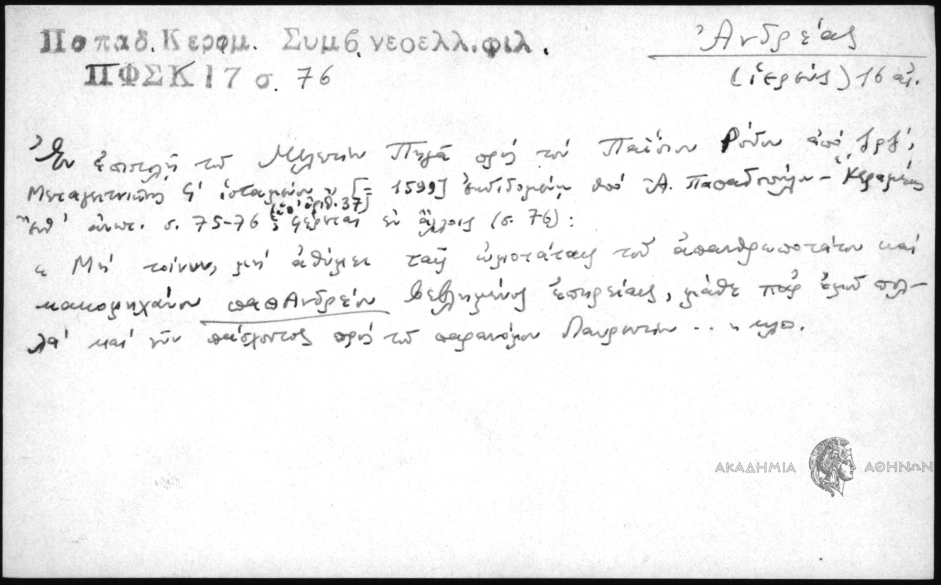 Παπαδ. Κεραμ. Συμβ. νεοελλ. φιλ.
ΠΦΣΚ 17 σ. 76
Ἀνδρέας
(ἱερεύς) 16 αἰ.
Ἐν ἐπιστολῇ τοῦ Μελετίου Πηγᾶ πρὸς τὸν Παΐσιον Ῥόδου ἀπὸ
Μεταγειτνιῶνος ἱσταμένου [= 1599] ἐκδιδομένῃ ὑπὸ Ἀ. Παπαδοπούλου-Κεραμέως
(ὑπ' ἀριθ. 37)
ἔνθ' ἀνωτ. σ. 75-76 φέρεται ἐν ἄλλοις (σ. 76):
« Μὴ τοίνυν, μὴ ἀθύμει ταῖς ὠμοτάταις τοῦ ἀπανθρωποτάτου καὶ
κακομηχάνου παπΑνδρέου βεβλημένος ἐπηρείαις, μάθε παρ' ἐμοῦ πολ-
λὰ καὶ νῦν πάσχοντος πρὸς τοῦ παρανόμου .. » κλπ.
ΑΚΑΔΗΜΙΑ ΑΘΗΝΩΝ